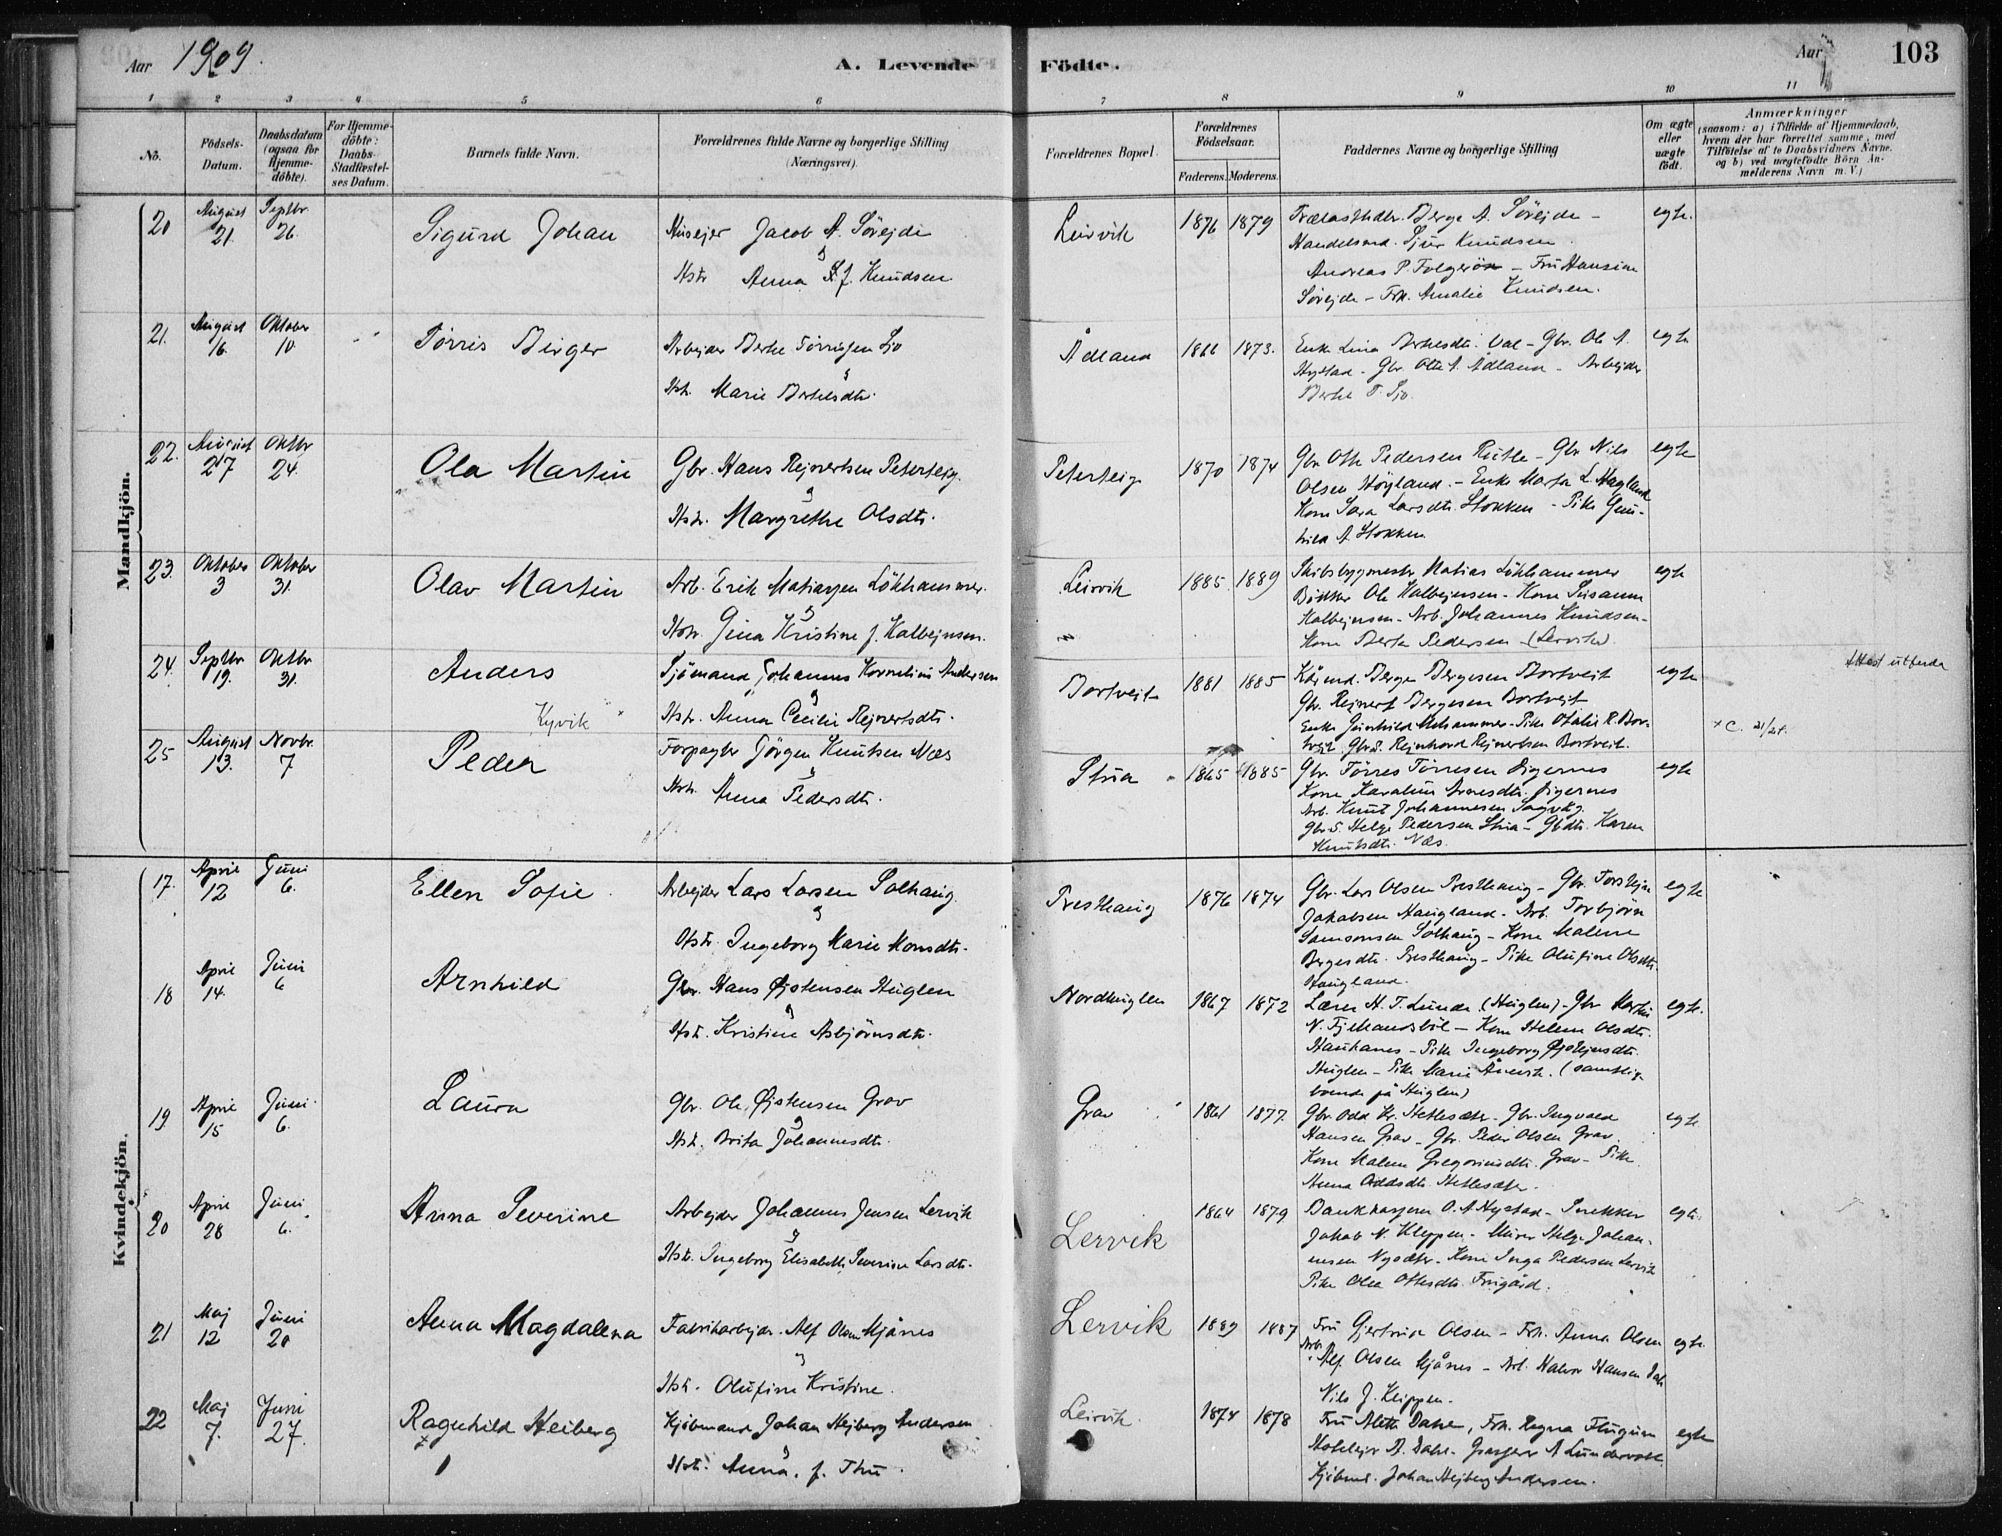 Aar 1909.
A. Levende Födte.
Aar
103
1 2 3 4 5 6 7 8 9 10 11
No.
Födsels-Datum.
Daabsdatum (ogsaa for Hjemme-döbte).
For Hjemme-döbte: Daabs-Stadfæstel-ses Datum.
Barnets fulde Navn.
Forældrenes fulde Navne og borgerlige Stilling (Næringsvei).
Forældrenes Bopæl.
Forældrenes Födselsaar.
Faderens. Moderens.
Faddernes Navne og borgerlige Stilling
Om ægte eller uægte födt.
Anmærkninger
(saasom: a) i Tilfælde af Hjemmedaab, hvem der har forrettet samme, med Tilföielse af to Daabsvidners Navne. og b) ved uægtefödte Börn An-melderens Navn m. V.)
Mandkjön.
20 August 21. Septbr. 26. Sigurd Johan
Husejer Jacob A. Sörejde
Hstr Anna S. f. Knudsen
Leirvik 1876 1879
Trælasthdlr. Berge A. Sörejde -
Handelsmd. Sjur Knudsen.
Andreas P. Folgerön - Fru Hansine
Sörejde - Frk. Amalie Knudsen.
egte.
21. August 16. Oktober 10. Törris Birger
Arbejder Bertel Törrisen Sjo
Hstr. Marie Bertelsdtr.
Ådland 1866 1873.
Enke Lina Bertelsdtr. Val - Gbr. Ole A.
Hystad - Gbr. Otto A. Ådland - Arbejder
Bertel T. Sjo.
egte
22. August 27 Oktbr 24. Ola Martin
Gbr. Hans Rejnertsen Peterteig.
Hstr. Margrethe Olsdtr.
Peterteig 1870 1874
Gbr. Otto Pedersen Rutle - Gbr Nils
Olsen Högland. - Enke Marta L. Hagland
Kone Sara Larsdtr. Stokken - Pike Gun-
hild A Stokken
egte
23. Oktober 3 Oktober 31. Olav Martin
Arb. Erik Matiasen Lökhammer.
Hstr. Gina Kristine f. Kolbejnsen.
Leirvik 1885 1889
Skibsbygmester Matias Lökhammer
Bödker Ole Kolbejnsen - Kone Susanna
Kolbejnsen - Arb. Johannes Knudsen -
Kone Berta Pedersen (Lervik)
egte
24. Septbr 19. Oktbr 31. Anders
Sjömand Johannes Kornelius Andersen
Hstr. Anna Cecilie Rejnertsdtr.
Bortvejt 1881 1885
Kårmd. Berge Bergesen Bortvejt
Gbr. Rejnert Bergesen Bortvejt
Pike Otalie R. Bor-
tvejt. Gbrs. Rejnhard Rejnertsen Bortveit.
egte
Attest utferda
Kyvik
25 August 13. Novbr. 7 Peder
Forpagter Görgen Knutsen Næs
Hstr. Anna Pedersdtr.
Stua 1865 1885
Gbr. Törres Törresen Digernes
Kone Karoline Arnesdtr. Digernes
Arb. Knut Johannesen Sagvåg.
Gbrs. Helge Pedersen Stua - Gbdtr. Karen
Knutsdtr. Næs.
egte
x C. 21/24.
Kvindekjön.
17. April 12 Juni 6. Ellen Sofie.
Arbejder Lars Larsen Solhaug.
Hstr. Ingeborg Marie Monsdtr.
Presthaug 1876 1874
Gbr. Lars Olsen Presthaug - Gbr. Torstejn
Jakobsen Haugland. Arb. Torbjörn
Samsonsen Solhaug - Kone Malene
Bergesdtr. Presthaug - Pike Olufine Olsdtr.
Haugland.
egte
18 April 14. Juni 6 Arnhild
Gbr. Hans Øistensen Huglen
Hstr. Kristine Asbjörnsdtr.
Nordhuglen 1867 1872
Lærer H. T. Lunde (Huglen) - Gbr Martin
N. Kone Helene Olsdtr.
Haukanes - Pike Ingeborg Øjstejnsdtr.
Huglen - Pike Marie (samtlig
boende på Huglen)
egte.
19 April 15 Juni 6. Laura
Gbr. Ole Øistensen Grov
Hstr. Brita Johannesdtr.
Grov 1861 1877.
Gbr. Odd Kr. Hetlesæter - Gbr. Ingvald
Hansen Grov - Gbr. Peder Olsen Grov.
Kone Malene Gregoriusdtr. Grov - Pike
Anna Oddsdtr. Hetlesæter.
egte
20 April 28 Juni 6. Anna Severine
Arbejder Johannes Jensen Lervik
Hstr. Ingeborg Elisabeth Severine Larsdtr.
Lervik 1864 1879
Bankkasserer O. A Hystad - Snekker
Jakob N. Kleppen - Murer Helge Johan-
nesen Nysæter. Kone Inga Pedersen Lervik
Pike Olea Ottesdtr. Frugård.
egte.
21 Maj 12 Juni 20 Anna Magdalena
Fabrikarbejder. Alf Olsen Mjånes
Hstr. Olufine Kristine.
Lervik 1889 1887
Fru Gjertrud Olsen - Frk. Anna Olsen
Arb. Alf Olsen Mjånes - Arb. Halvor Hansen Dale
Nils J. Kleppen.
egte.
22 Maj 7. Juni 27. Ragnhild Heiberg
Kjöbmand Johan Hejberg Andersen
Hstr. Anna, f. Thu.
Leirvik. 1874 1878
Fru Aletta Dahle, Frk. Ragna
Hotelejer A. Dahle. A Lundervold.
Kjöbmd. Johan Hejberg Andersen.
egte